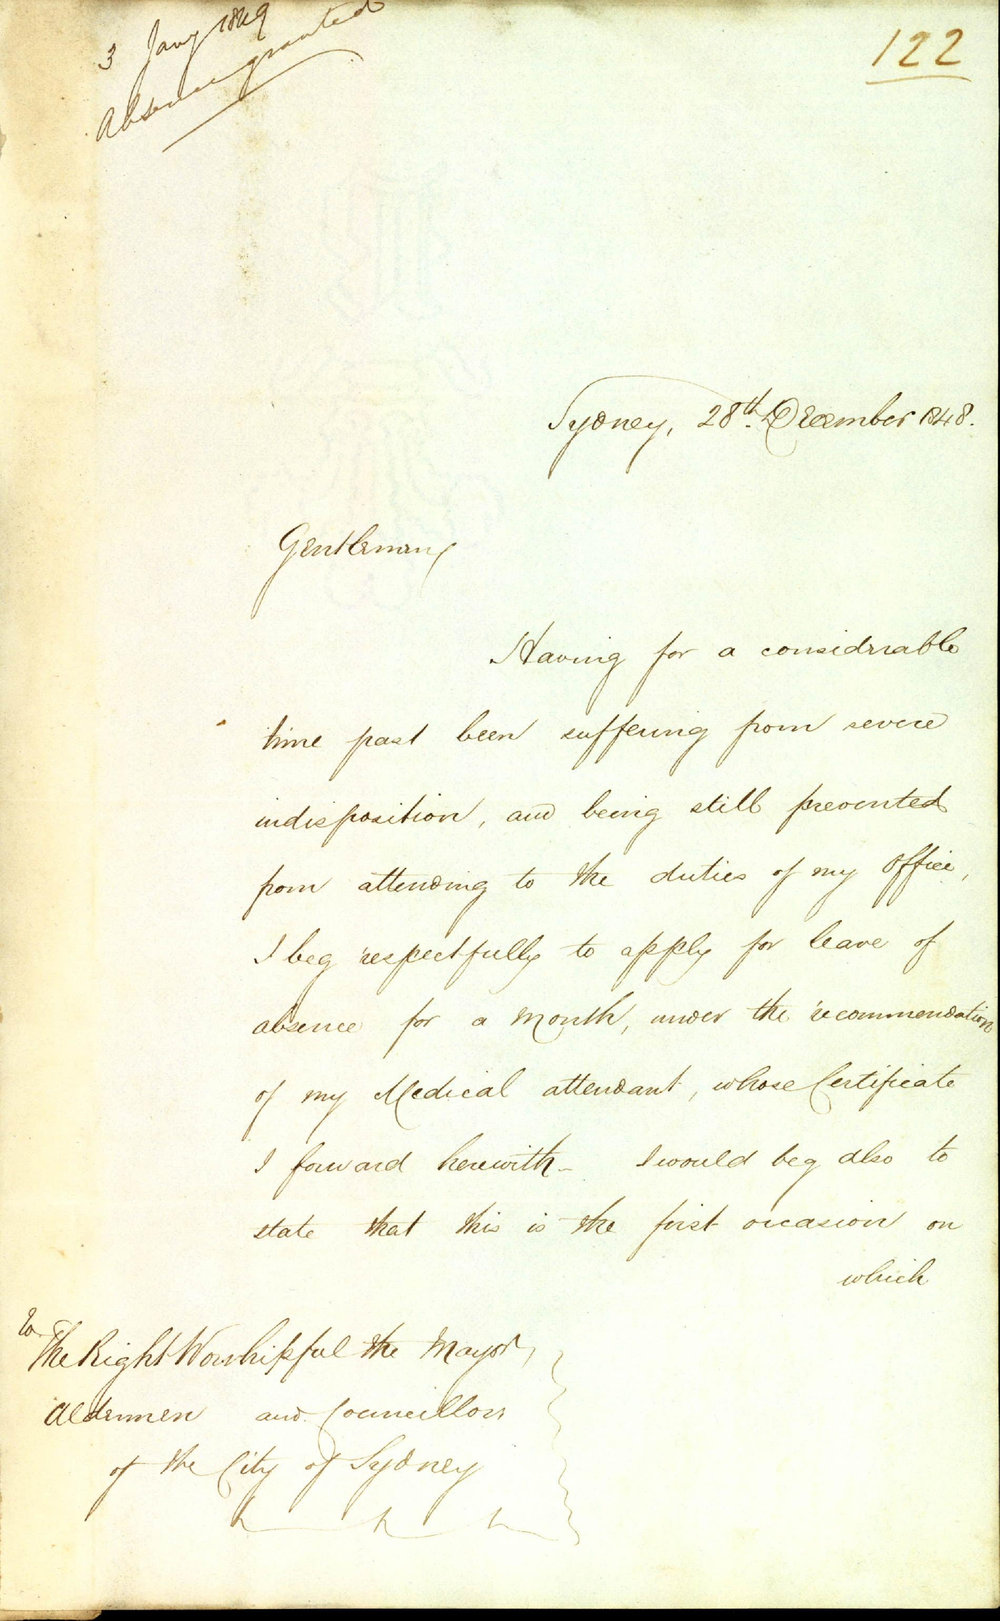 3 Jany 1849
Absence granted
122
Sydney, 28th. December 1848.
Gentlemen,
Having for a considerable
time past been suffering from severe
indisposition, and being still prevented
from attending to the duties of my Office,
I beg respectfully to apply for leave of
absence for a Month, under the recommendation
of my Medical attendant, whose Certificate
I forward herewith_ I would beg also to
state that this is the first occasion on
which
To
The Right Worshipful the Mayor,
Aldermen and Councillors
of the City of Sydney